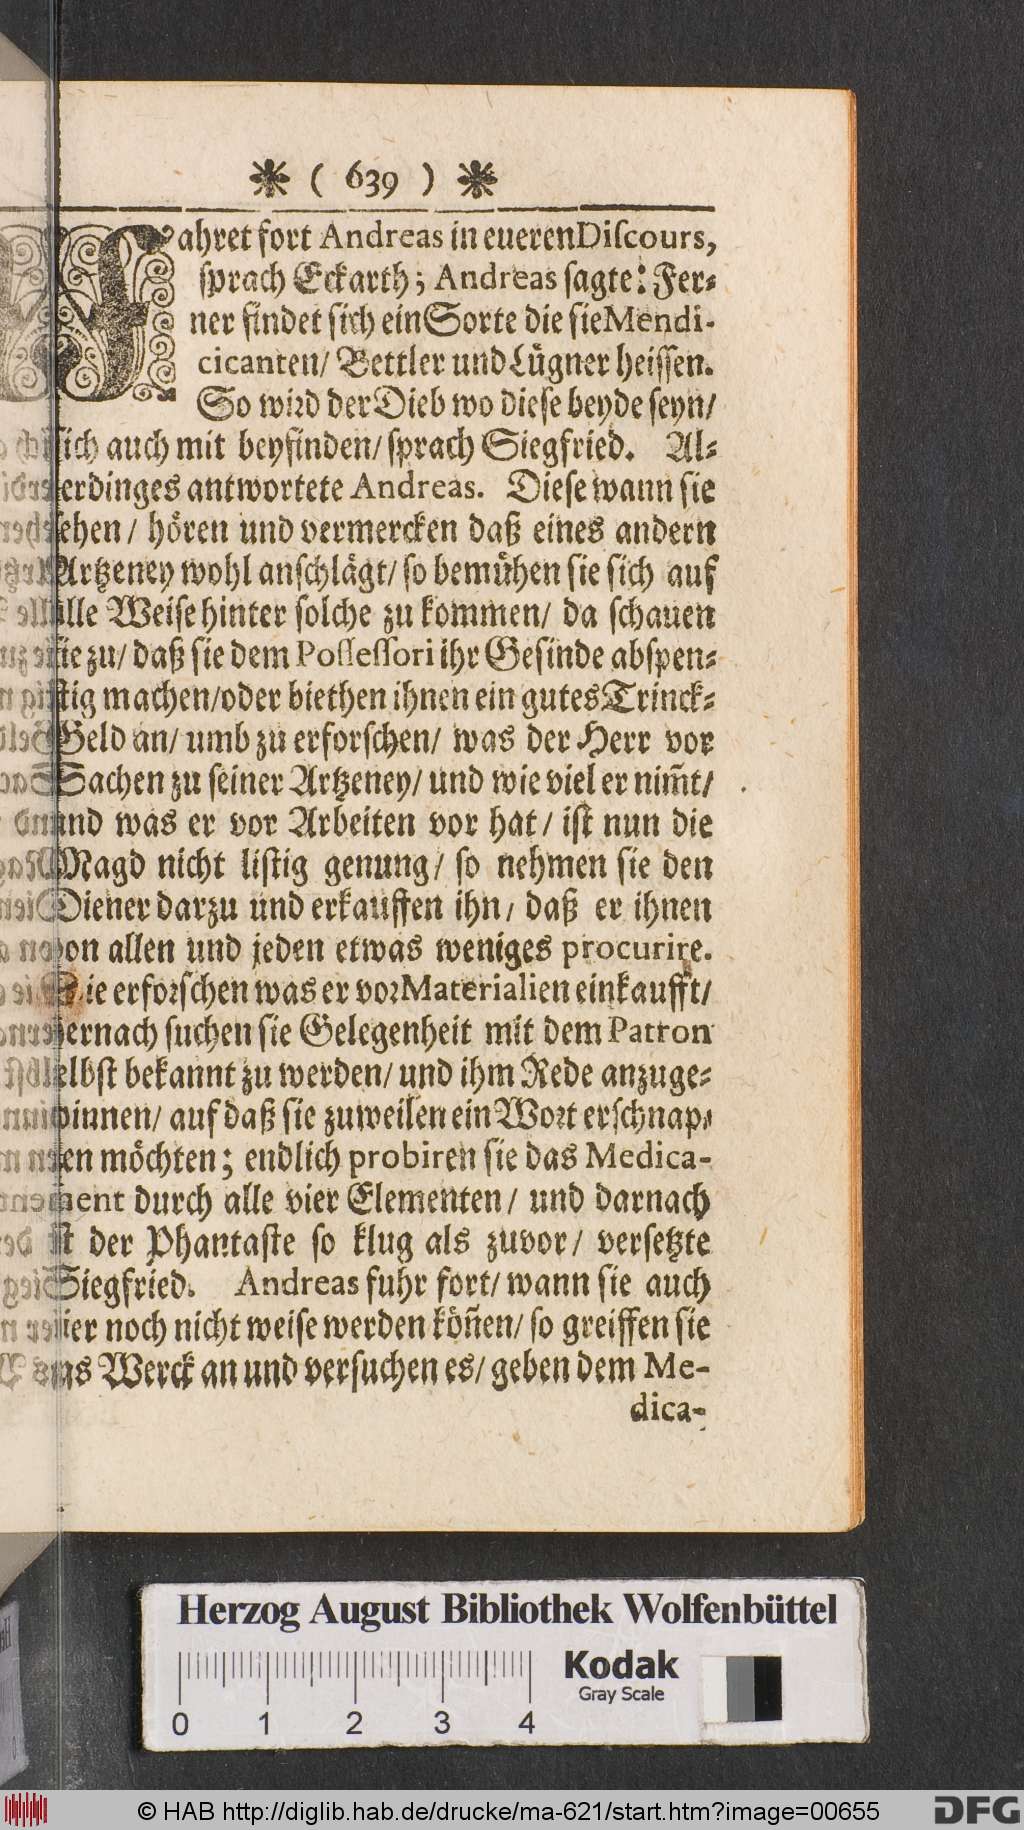 ❋ ( 639 ) ❋
Fahret fort Andreas in eueren Discours,
sprach Eckarth; Andreas sagte: Fer-
ner findet sich ein Sorte die sie Mendi-
cicanten/ Bettler und Lügner heissen.
So wird der Dieb wo diese beyde seyn/
sich auch mit beyfinden/ sprach Siegfried. Al-
lerdinges antwortete Andreas. Diese wann sie
sehen/ hören und vermercken daß eines andern
Artzeney wohl anschlägt/ so bemühen sie sich auf
alle Weise hinter solche zu kommen/ da schauen
sie zu/ daß sie dem Possessori ihr Gesinde abspen-
stig machen/ oder biethen ihnen ein gutes Trinck-
Geld an/ umb zu erforschen/ was der Herr vor
Sachen zu seiner Artzeney/ und wie viel er nim̄t/
und was er vor Arbeiten vor hat/ ist nun die
Magd nicht listig genung/ so nehmen sie den
Diener darzu und erkauffen ihn/ daß er ihnen
von allen und jeden etwas weniges procurire.
Sie erforschen was er vor Materialien einkaufft/
hernach suchen sie Gelegenheit mit dem Patron
selbst bekannt zu werden/ und ihm Rede anzuge-
winnen/ auf daß sie zuweilen ein Wort erschnap-
pen möchten; endlich probiren sie das Medica-
ment durch alle vier Elementen/ und darnach
ist der Phantaste so klug als zuvor/ versetzte
Siegfried. Andreas fuhr fort/ wann sie auch
hier noch nicht weise werden kön̄en/ so greiffen sie
das Werck an und versuchen es/ geben dem Me-
dica-
Herzog August Bibliothek Wolfenbüttel
Kodak
Gray Scale
0 1 2 3 4
© HAB http://diglib.hab.de/drucke/ma-621/start.htm?image=00655
DFG